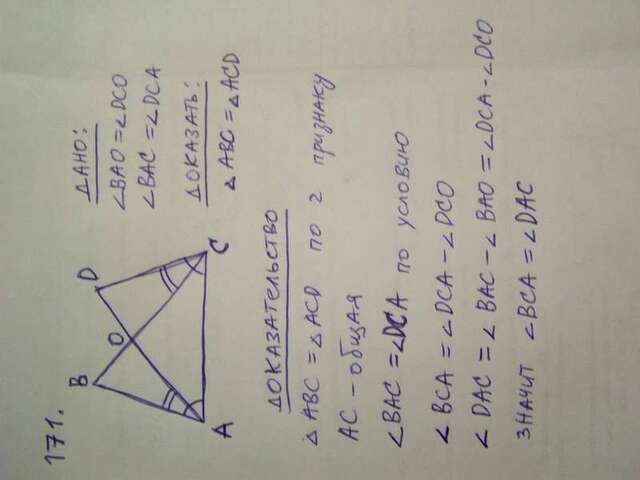 171.
B
D
O
A
C
ДАНО:
∠BAO = ∠DCO
∠BAC = ∠DCA
ДОКАЗАТЬ:
△ABC = △ACD
ДОКАЗАТЕЛЬСТВО
△ABC = △ACD ПО 2 ПРИЗНАКУ
AC - ОБЩАЯ
∠BAC = ∠DCA ПО УСЛОВИЮ
∠BCA = ∠DCA - ∠DCO
∠DAC = ∠BAC - ∠BAO = ∠DCA - ∠DCO
ЗНАЧИТ ∠BCA = ∠DAC